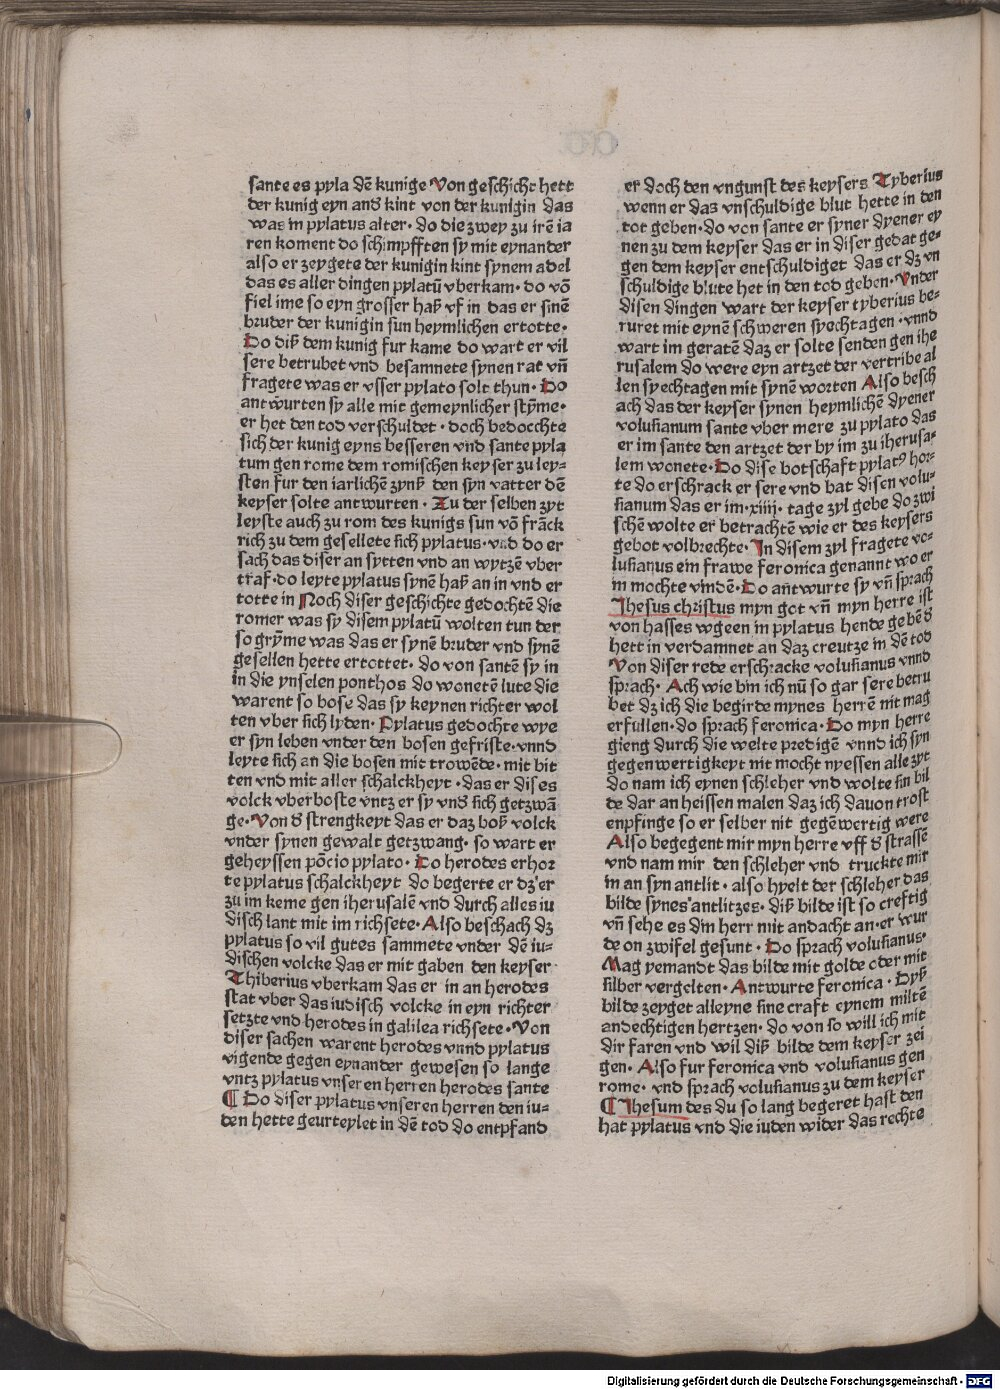 sante es pyla dē kunige Von geschicht hett
der kunig eyn and kint von der kunigin das
was in pylatus alter· do die zwey zu irē ia
ren koment do schimpfften sy mit eynander
also er zeygete der kunigin kint synem adel
das es aller dingen pylatū vberkam· do vō
fiel ime so eyn grosser haß vf in das er sinē
bruder der kunigin sun heymlichen ertotte·
Do diß dem kunig fur kame do wart er vil
sere betrubet vnd besamnete synen rat vn̄
fragete was er vsser pylato solt thun· Do
antwurten sy alle mit gemeynlicher stȳme·
er het den tod verschuldet· doch bedocchte
sich der kunig eyns besseren vnd sante pyla
tum gen rome dem romischen keyser zu ley-
sten fur den iarlichē zynß den syn vatter dē
keyser solte antwurten· Zu der selben zyt
leyste auch zu rom des kunigs sun vō frāck
rich zu dem gesellete sich pylatus· vnd do er
sach das diser an sytten vnd an wytzē vber
traf· do leyte pylatus synē haß an in vnd er
totte in Noch diser geschichte gedochtē die
romer was sy disem pylatū wolten tun der
so grȳme was das er synē bruder vnd synē
gesellen hette ertottet· do von santē sy in
in die ynselen ponthos do wonetē lute die
warent so bose das sy keynen richter wol
ten vber sich lyden· Pylatus gedochte wye
er syn leben vnder den bosen gefriste· vnnd
leyte sich an die bosen mit trowēde· mit bit
ten vnd mit aller schalckheyt· das er dises
volck vberboste vntz er sy vnd sich getzwā
ge· Von d strengkeyt das er daz boß volck
vnder synen gewalt getzwang· so wart er
geheyssen pōcio pylato· Do herodes erhor
te pylatus schalckheyt do begerte er dz er
zu im keme gen iherusalē vnd durch alles iu
disch lant mit im richsete· Also beschach dz
pylatus so vil gutes sammete vnder dē iu-
dischen volcke das er mit gaben den keyser
Thiberius vberkam das er in an herodes
stat vber das iudisch volcke in eyn richter
setzte vnd herodes in galilea richsete· Von
diser sachen warent herodes vnnd pylatus
vigende gegen eynander gewesen so lange
vntz pylatus vnseren herren herodes sante
¶ Do diser pylatus vnseren herren den iu-
den hette geurteylet in dē tod do entpfand
er doch den vngunst des keysers Tyberius
wenn er das vnschuldige blut hette in den
tot geben· do von sante er syner dyener ey
nen zu dem keyser das er in diser gedat ge-
gen dem keyser entschuldiget das er dz vn
schuldige blute het in den tod geben· Vnder
disen dingen wart der keyser tyberius be-
ruret mit eynē schweren syechtagen· vnnd
wart im geratē daz er solte senden gen ihe
rusalem do were eyn artzet der vertribe al
len syechtagen mit synē worten Also besch
ach das der keyser synen heymlichē dyener
volusianum sante vber mere zu pylato das
er im sante den artzet der by im zu iherusa-
lem wonete· Do dise botschaft pylatꝰ hor-
te do erschrack er sere vnd bat disen volu-
sianum das er im·xiiij· tage zyl gebe do zwi
schē wolte er betrachtē wie er des keysers
gebot volbrechte· In disem zyl fragete vo-
lusianus ein frawe feronica genannt wo er
in mochte vindē· Do antwurte sy vn̄ sprach
Ihesus christus myn got vn̄ myn herre ist
von hasses wgeen in pylatus hende gebē d
hett in verdamnet an daz creutze in dē tod
Von diser rede erschracke volusianus vnnd
sprach· Ach wie bin ich nū so gar sere betru
bet dz ich die begirde mynes herrē nit mag
erfullen· do sprach feronica· Do myn herre
gieng durch die welte predigē vnnd ich syn
gegenwertigkeyt nit mocht nyessen alle zyt
do nam ich eynen schleher vnd wolte sin bil
de dar an heissen malen daz ich dauon trost
enpfinge so er selber nit gegēwertig were
Also begegent mir myn herre vff d strassē
vnd nam mir den schleher vnd truckte mir
in an syn antlit· also hyelt der schleher das
bilde synes antlitzes· diß bilde ist so creftig
vn̄ sehe es din herr mit andacht an· er wur
de on zwifel gesunt· Do sprach volusianus·
Mag yemandt das bilde mit golde oder mit
silber vergelten· Antwurte feronica· Dyß
bilde zeyget alleyne sine craft eynem miltē
andechtigen hertzen· do von so will ich mit
dir faren vnd wil diß bilde dem keyser zei
gen· Also fur feronica vnd volusianus gen
rome· vnd sprach volusianus zu dem keyser
¶ Ihesum des du so lang begeret hast den
hat pylatus vnd die iuden wider das rechte
Digitalisierung gefördert durch die Deutsche Forschungsgemeinschaft · DFG